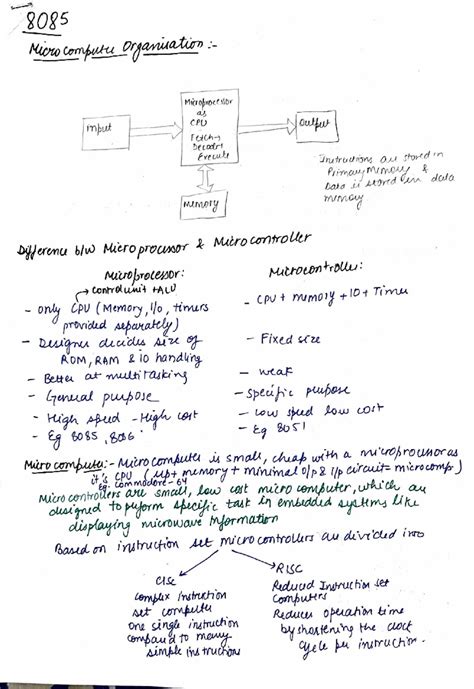 8085
Microcomputer Organisation :-
Microprocessor
as
CPU
Fetch→
Decode→
Execute
Input
Output
Memory
Instructions are stored in
Primary Memory &
Data is stored in data
memory
Difference b/w Microprocessor & Microcontroller
Microprocessor:
→ control unit + ALU
- only CPU (Memory, I/o, timers
provided separately)
- Designer decides size of
ROM, RAM & io handling
- Better at multitasking
- General purpose
- High speed - High cost
- Eg 8085, 8086
Microcontroller:
- CPU + memory + IO + Timer
- Fixed size
- weak
- specific purpose
- low speed low cost
- Eg 8051
Microcomputer:- Microcomputer is small, cheap with a microprocessor as
it's CPU (μp + memory + minimal o/p & i/p circuit - microcomp)
Eg: Commodore-64
Microcontrollers are small, low cost micro computer, which are
designed to perform specific task in embedded systems like
displaying microwave Information
Based on instruction set microcontrollers are divided into
CISC
complex Instruction
set computer
one single instruction
compared to many
simple instructions
RISC
Reduced Instruction set
Computers
Reduces operation time
by shortening the clock
cycle per instruction.